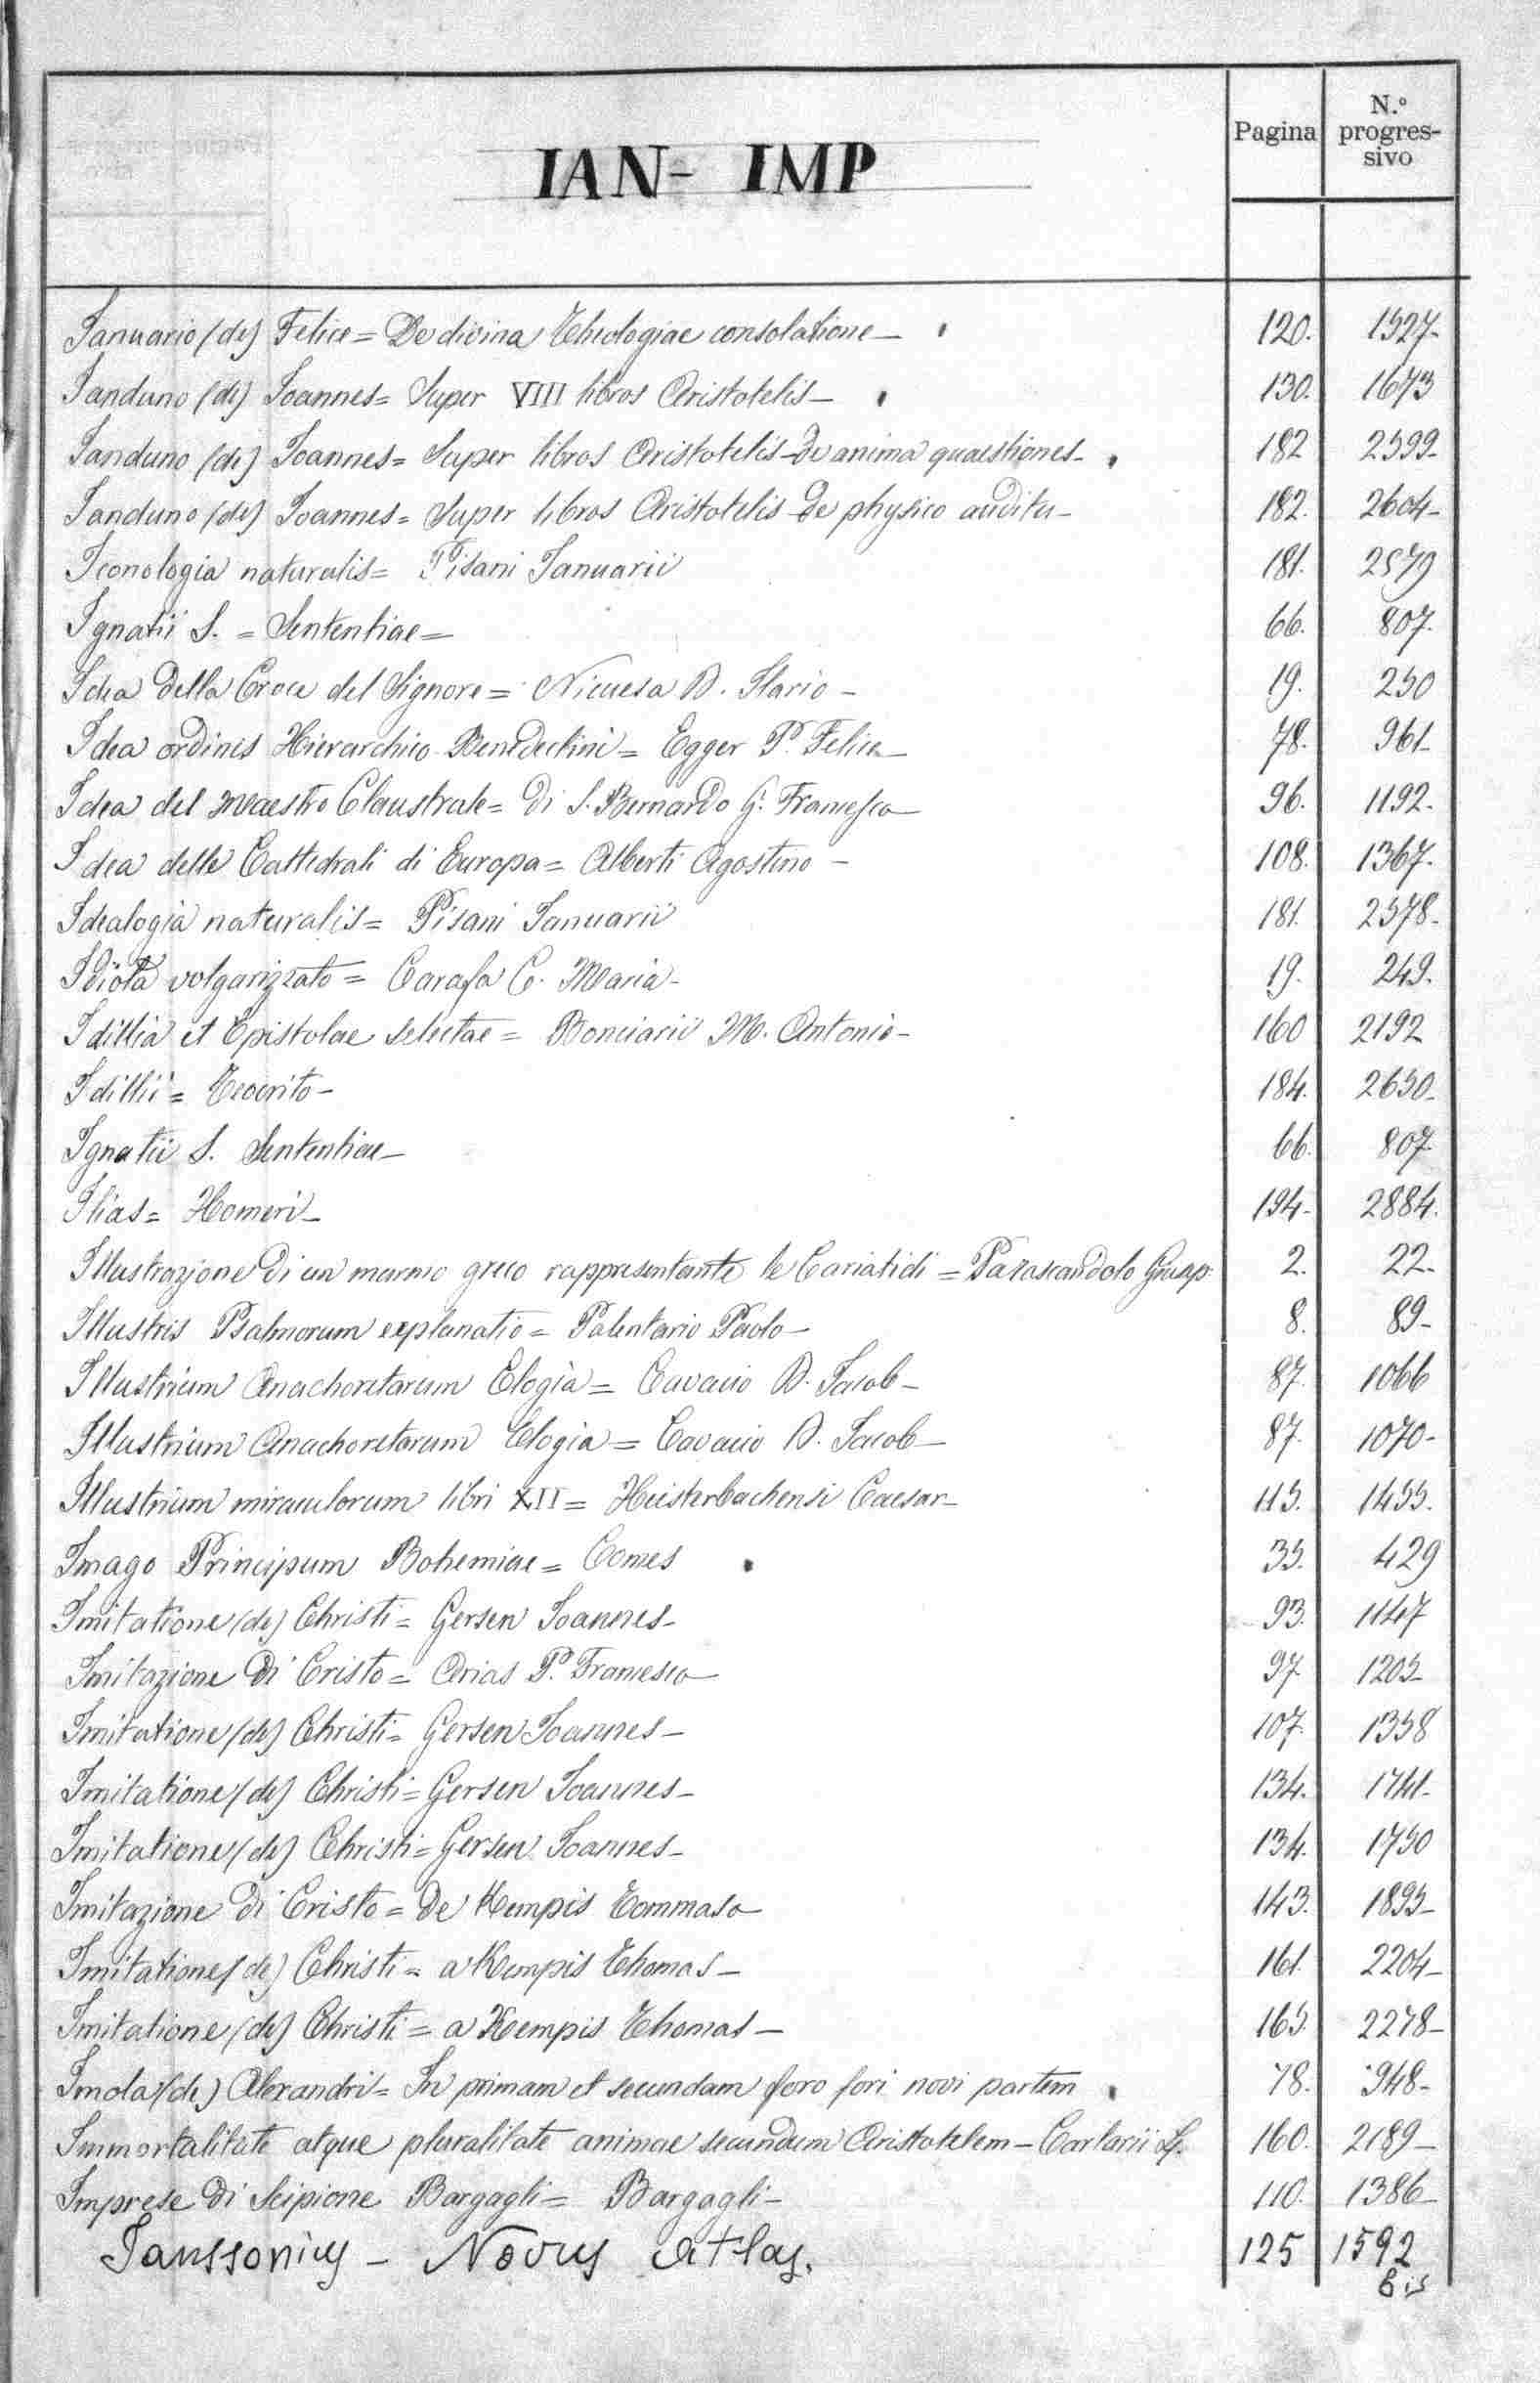 IAN- IMP
Pagina
N.º progressivo
Ianuario (de) Felice = De divina Theologiae consolatione - 120. 1527-
Ianduno (de) Ioannes = Super VIII libros Aristotelis - 130. 1673
Ianduno (de) Ioannes = Super libros Aristotelis - de anima quaestiones - 182 2599-
Ianduno (de) Ioannes = Super libros Aristotelis - de physico auditu - 182. 2604-
Iconologia naturalis = Pisani Ianuarii 181. 2579
Ignatii S. = Sententiae = 66. 807.
Idea della Croce del Signore = Nicuesa D. Ilario - 19. 250
Idea ordinis Hierarchico-Benedectini = Egger P. Felice - 78. 961-
Idea del Maestro Claustrale = di S. Bernardo G. Francesco - 96. 1192.
Idea delle Cattedrali di Europa = Alberti Agostino - 108. 1367.
Idealogia naturalis = Pisani Ianuarii 181. 2578-
Idiota volgarizzato = Carafa C. Maria - 19. 249.
Idillia et Epistolae selectae = Bonciarii M. Antonio - 160 2192
Idillii = Teocrito - 184. 2650-
Ignatii S. Sententiae - 66. 807
Ilias = Homeri - 194- 2884.
Illustrazione di un marmo greco rappresentante le Cariatidi = Parascandolo Giusp. 2. 22-
Illustris Psalmorum explanatio = Palentario Paolo - 8. 89-
Illustrium Anachoretarum Elogia = Cavacio D. Iacob - 87. 1066
Illustrium Anachoretarum Elogia = Cavacio D. Iacob - 87. 1070-
Illustrium miraculorum libri XII = Heisterbachensi Caesar - 115. 1455.
Imago Principum Bohemiae = Comes 35. 429
Imitatione (de) Christi = Gersen Ioannes - 93. 1147
Imitazione di Cristo = Arias P. Francesco - 97 1205-
Imitatione (de) Christi = Gersen Ioannes - 107. 1358
Imitatione (de) Christi = Gersen Ioannes - 134. 1741-
Imitatione (de) Christi = Gersen Ioannes - 134. 1750
Imitazione di Cristo = De Kempis Tommaso - 143. 1895-
Imitatione (de) Christi = a Kempis Thomas - 161. 2204-
Imitatione (de) Christi = a Kempis Thomas - 165. 2278-
Imola (de) Alexandri = In primam et secundam foro fori novi partem 78. 948-
Immortalitate atque pluralitate animae secundum Aristotelem - Cartarii 160. 2189-
Imprese di Scipione Bargagli = Bargagli - 110. 1386-
Ianssonius - Novus Atlas. 125 1592
bis